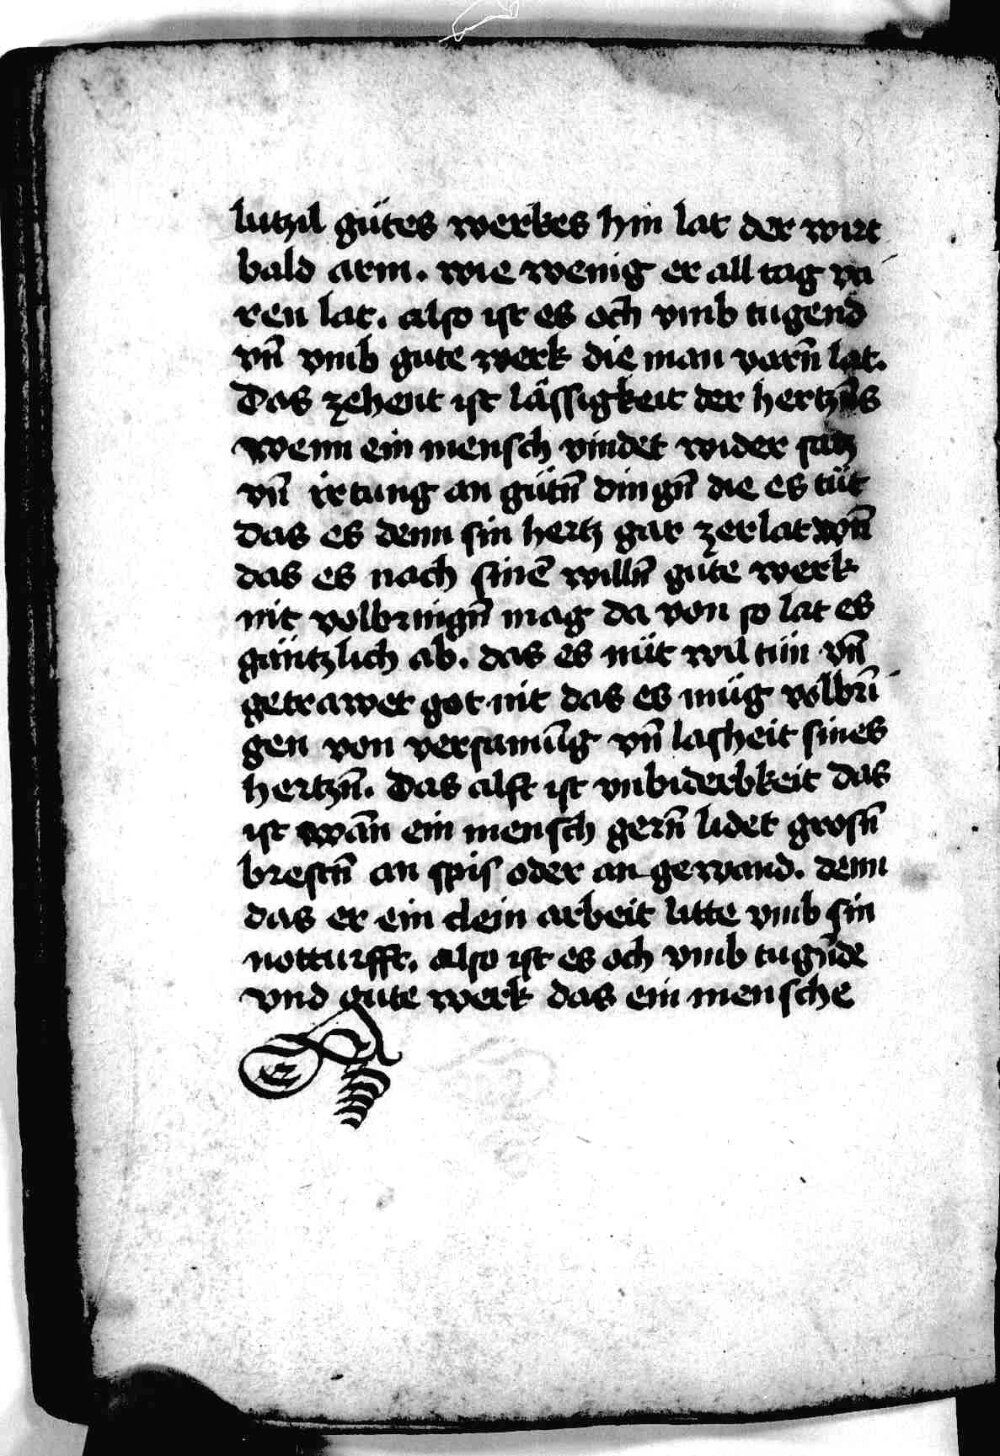 lutzil gütes werkes hin lat der wirt
bald arm. wie wenig er all tag va
ren lat. also ist es och vmb tugend
vn̄ vmb gute werk die man varn̄ lat.
Das zehent ist lässigkeit der hertzn̄s
wenn ein mensch vindet wider satz
vn̄ irtung an gütn̄ dingn̄ die es tüt
das es denn sin hertz gar zerlat wn̄
das es nach sinē willn̄ gute werk
nit volbringn̄ mag da von so lat es
gäntzlich ab. das es nüt wil tün vn̄
getrawet got nit das es müg volbrī
gen von versamūg vn̄ lasheit sines
hertzn̄. Das alft ist vnbiderbkeit das
ist wān ein mensch gern̄ lidet grosn̄
brestn̄ an spis oder an gewand. denn
das er ein clein arbeit litte vmb sin
notturfft. also ist es och vmb tugn̄de
vnd gute werk das ein mensche